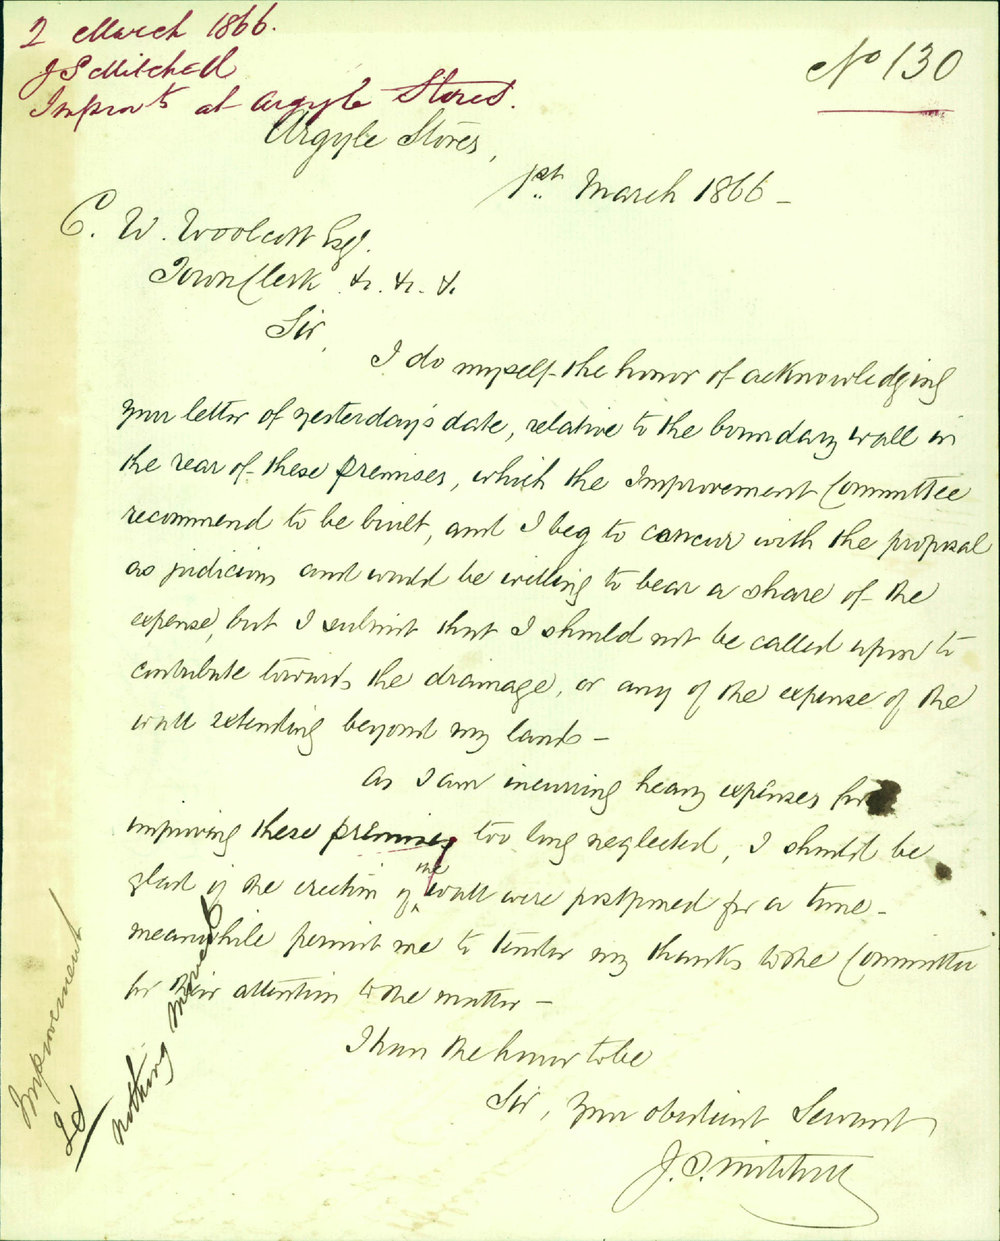 2 March 1866.
J S Mitchell
Improvts at Argyle Stores.
No 130
Argyle Stores,
1st March 1866 -
C. W. Woolcott Esq.
Town Clerk &c. &c. &c.
Sir,
I do myself the honor of acknowledging
your letter of yesterday's date, relative to the boundary wall in
the rear of these premises, which the Improvement Committee
recommend to be built, and I beg to concur with the proposal
as judicious and would be willing to bear a share of the
expense, but I submit that I should not be called upon to
contribute towards the drainage, or any of the expense of the
wall extending beyond my land -
As I am incurring heavy expenses for
improving these premises too long neglected, I should be
glad if the erection of the wall were postponed for a time -
meanwhile permit me to tender my thanks to the Committee
for their attention to the matter -
I have the honor to be
Sir, your obedient Servant
J. S. Mitchell
Improvement
nothing moved